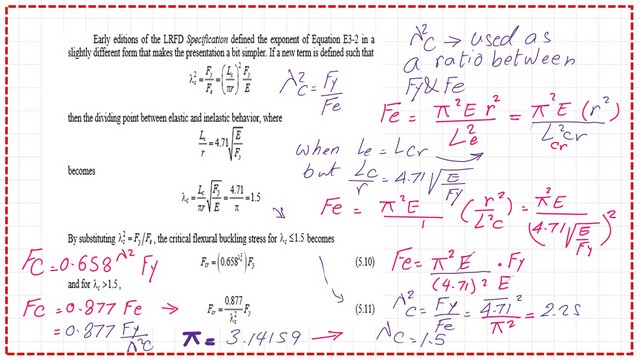 Early editions of the LRFD Specification defined the exponent of Equation E3-2 in a
slightly different form that makes the presentation a bit simpler. If a new term is defined such that
λc² = Fy/Fe = (Lc/πr)² Fy/E
then the dividing point between elastic and inelastic behavior, where
Lc/r = 4.71√(E/Fy)
becomes
λc = Lc/πr √(Fy/E) = 4.71/π = 1.5
By substituting λc² = Fy/Fe, the critical flexural buckling stress for λc ≤ 1.5 becomes
Fcr = (0.658^λc²)Fy (5.10)
and for λc > 1.5,
Fcr = 0.877/λc² Fy (5.11)
λ²c = Fy/Fe
λ²c → used as
a ratio between
Fy & Fe
Fe = π²E r²/L²e = π²E (r²)/L²cr
cr
when Le = Lcr
but Lc/r = 4.71 √(E/Fy)
Fe = π²E/1 (r²/L²c) = π²E/(4.71√(E/Fy))²
Fe = π²E/(4.71)² E · Fy
λ²c = Fy/Fe = 4.71²/π² = 2.25
λc = 1.5
Fc = 0.658^λ² Fy
Fc = 0.877 Fe →
= 0.877 Fy/λ²c
π = 3.14159 →